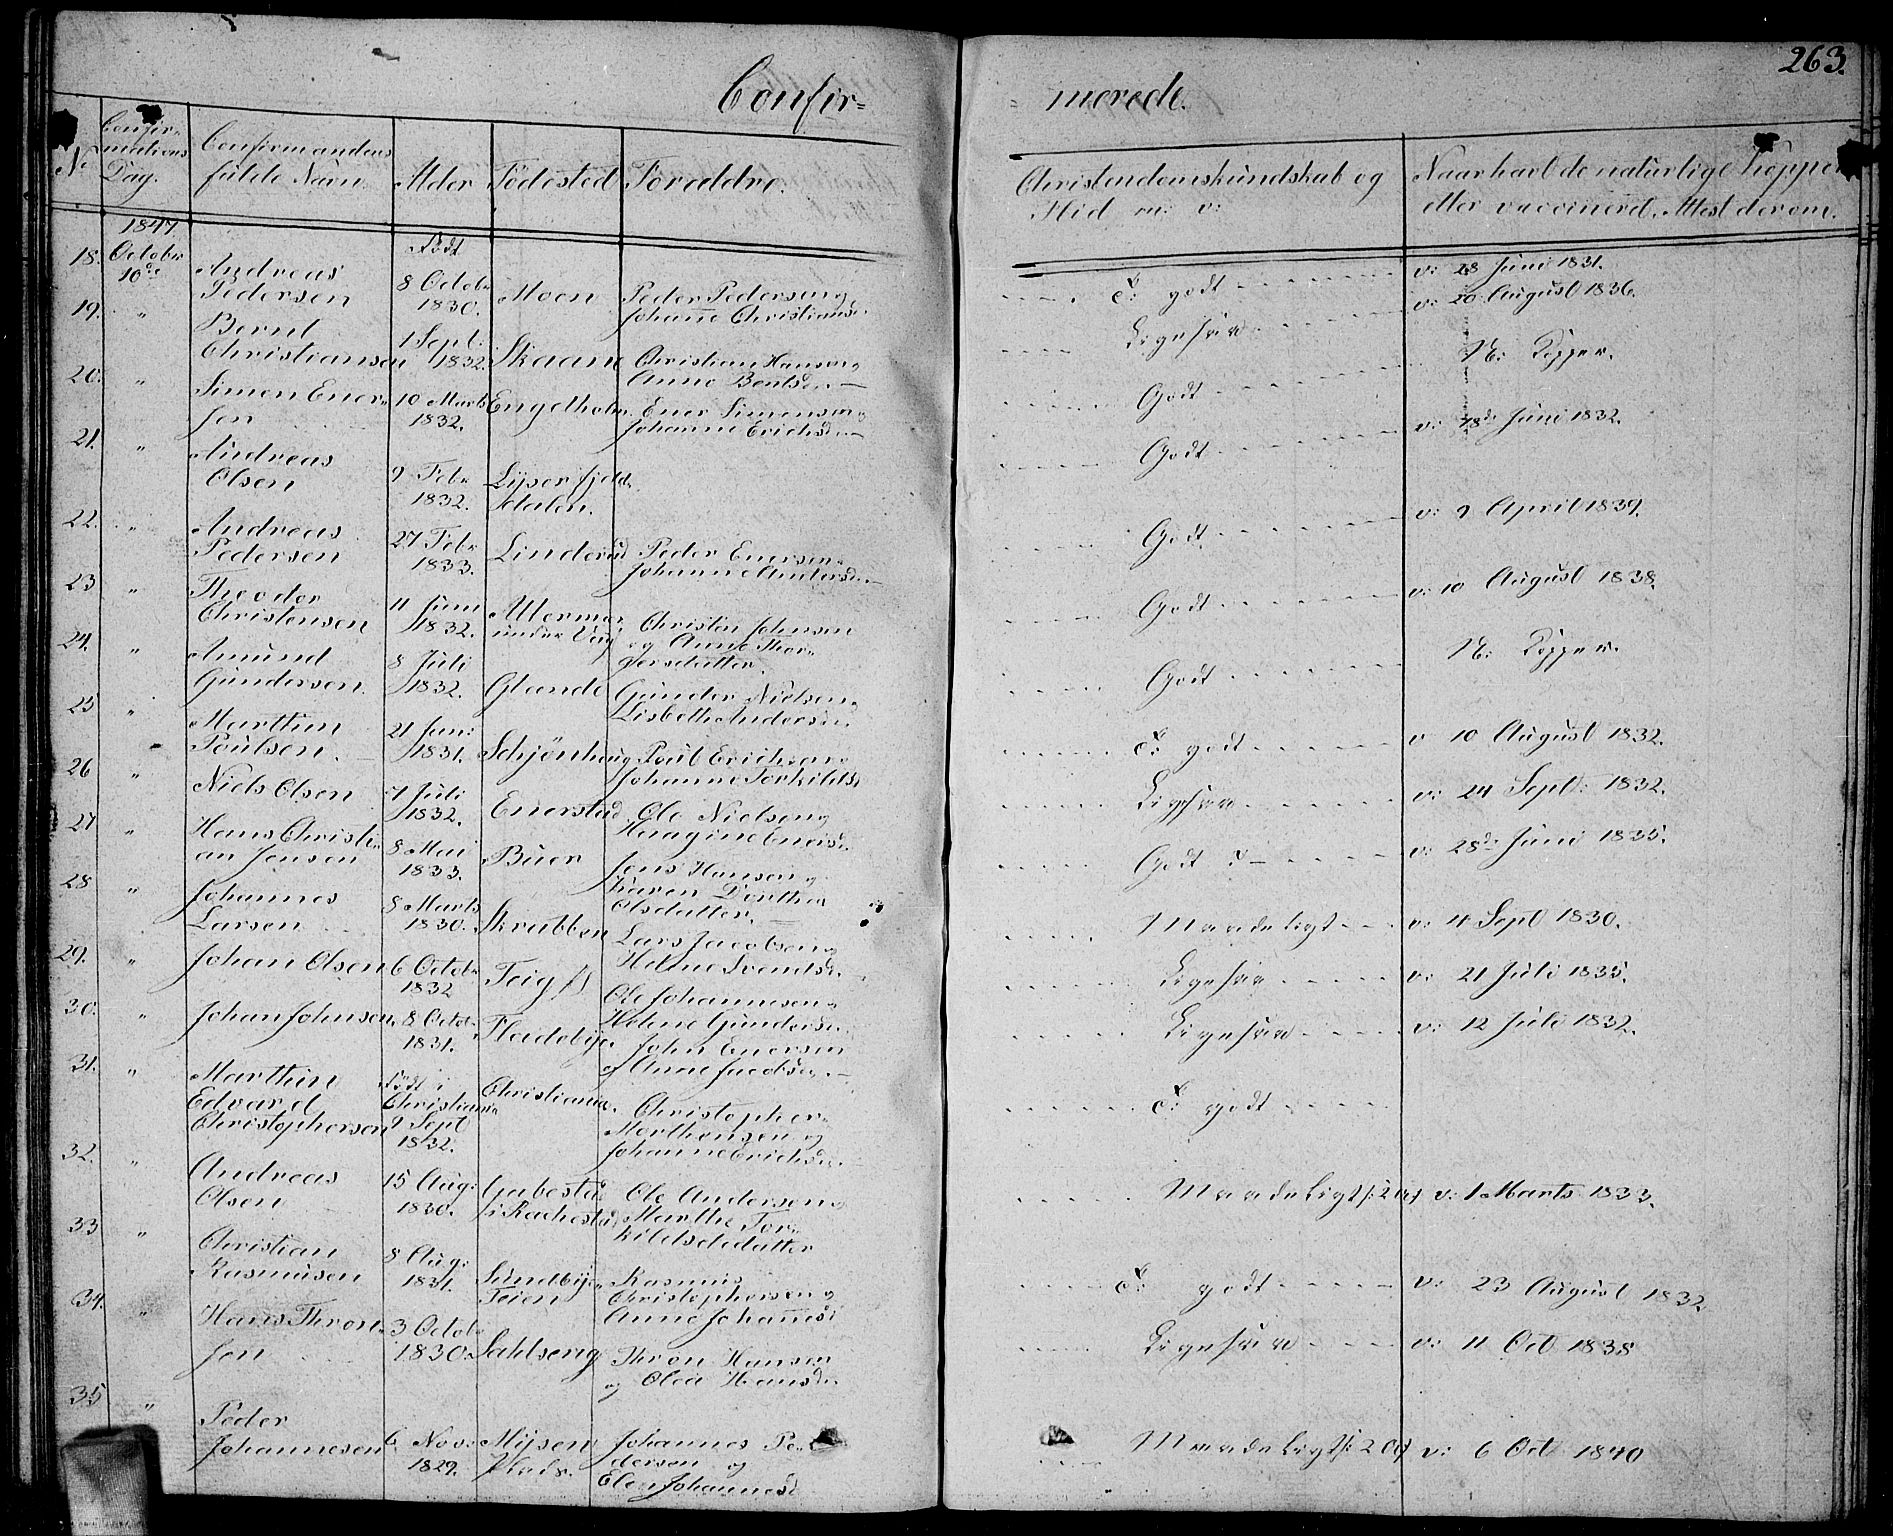 263.
Confir= merede.
No Confir- mations Dag. Confirmandens fulde Navn. Alder Födested Forældre. Christendomskundskab og Flid m: v: Naar havt de naturlige Kopper eller vaccineret. Attest derom.
1847 Födt
18. October 10de Andreas Pedersen 8 Octobr 1830. Moen Peder Pedersen og Johanne Christiansd. T: godt v: 28 Juni 1831.
19. " Bernt Christiansen 1 Sept: 1832. Skaane Christian Hansen og Anne Bentsd. Ligesaa v: 20 August 1836.
20. " Simen Ener- sen 10 Marts 1832. Engelholm. Ener Simensen og Johanne Erichsd. Godt N: Kopper.
21. " Andreas Olsen 9 Febr 1832. Lyserfjeld- dalen. Godt v: 18de Juni 1832.
22. " Andreas Pedersen 27 Febr 1833. Linderud Peder Enersen og Johanne Andersd. Godt v: 9 April 1839.
23 " Theodor Christensen 11 Juni 1832. under Christen Johnsen og Anne Thor- gersdatter. Godt v: 10 August 1838.
24. " Amund Gundersen. 8 Juli 1832. Glende Gunder Nielsen og Lisbeth Andersd. Godt N: Kopper.
25 " Marthin Poulsen. 21 Jan: 1831. Schjönhaug Poul Erichsen og Johanne Torkildsd. T: godt v 10 August 1832.
26 " Niels Olsen 7 Juli 1832. Enerstad Ole Nielsen og Enersd. Ligesaa v: 24 Sept: 1832.
27 " Hans Christi- an Jensen 8 Mai 1833. Buer Jens Hansen og Karen Dorthea Olsdatter. Godt v: 28de Juni 1835.
28 " Johannes Larsen 8 Marts 1830. Skrubben Lars Jacobsen og Helene Svendsd. Maadeligt v: 4 Sept 1830.
29. " Johan Olsen 6 Octobr 1832 Teig Ole Johannesen og Helene Gundersd. Ligesaa v: 21 Juli 1835.
30. " Johan Johnsen. 8 Octob. 1831. Fladebye John Enersen og Anne Jacobsd. Ligesaa v: 12 Juli 1832.
31. " Marthin Edvard Christophersen Födt i Christiania 9 Sept 1832. Christiania. Christopher Morthensen og Johanne Erichsd. T: godt
32. " Andreas Olsen 15 Aug: 1830. Gabestad i Rachestad Ole Andersen og Marthe Tor- kildsdatter Maadeligt v: 1 Marts 1833.
33 " Christian Rasmusen 8 Aug: 1831. Sundbye- Teien Rasmus Christophersen og Anne Johannesd. T: godt v: 23 August 1832.
34. " Hans Thron- sen 3 Octob. 1830. Sahlserig Thron Hansen og Olea Hansd. Ligesaa v: 11 Oct 1838
35 " Peder Johannesen 6 Nov: 1829. Mysen Plads. Johannes Pe- dersen og Elen Johannesd Maadeligt v: 6 Oct 1840